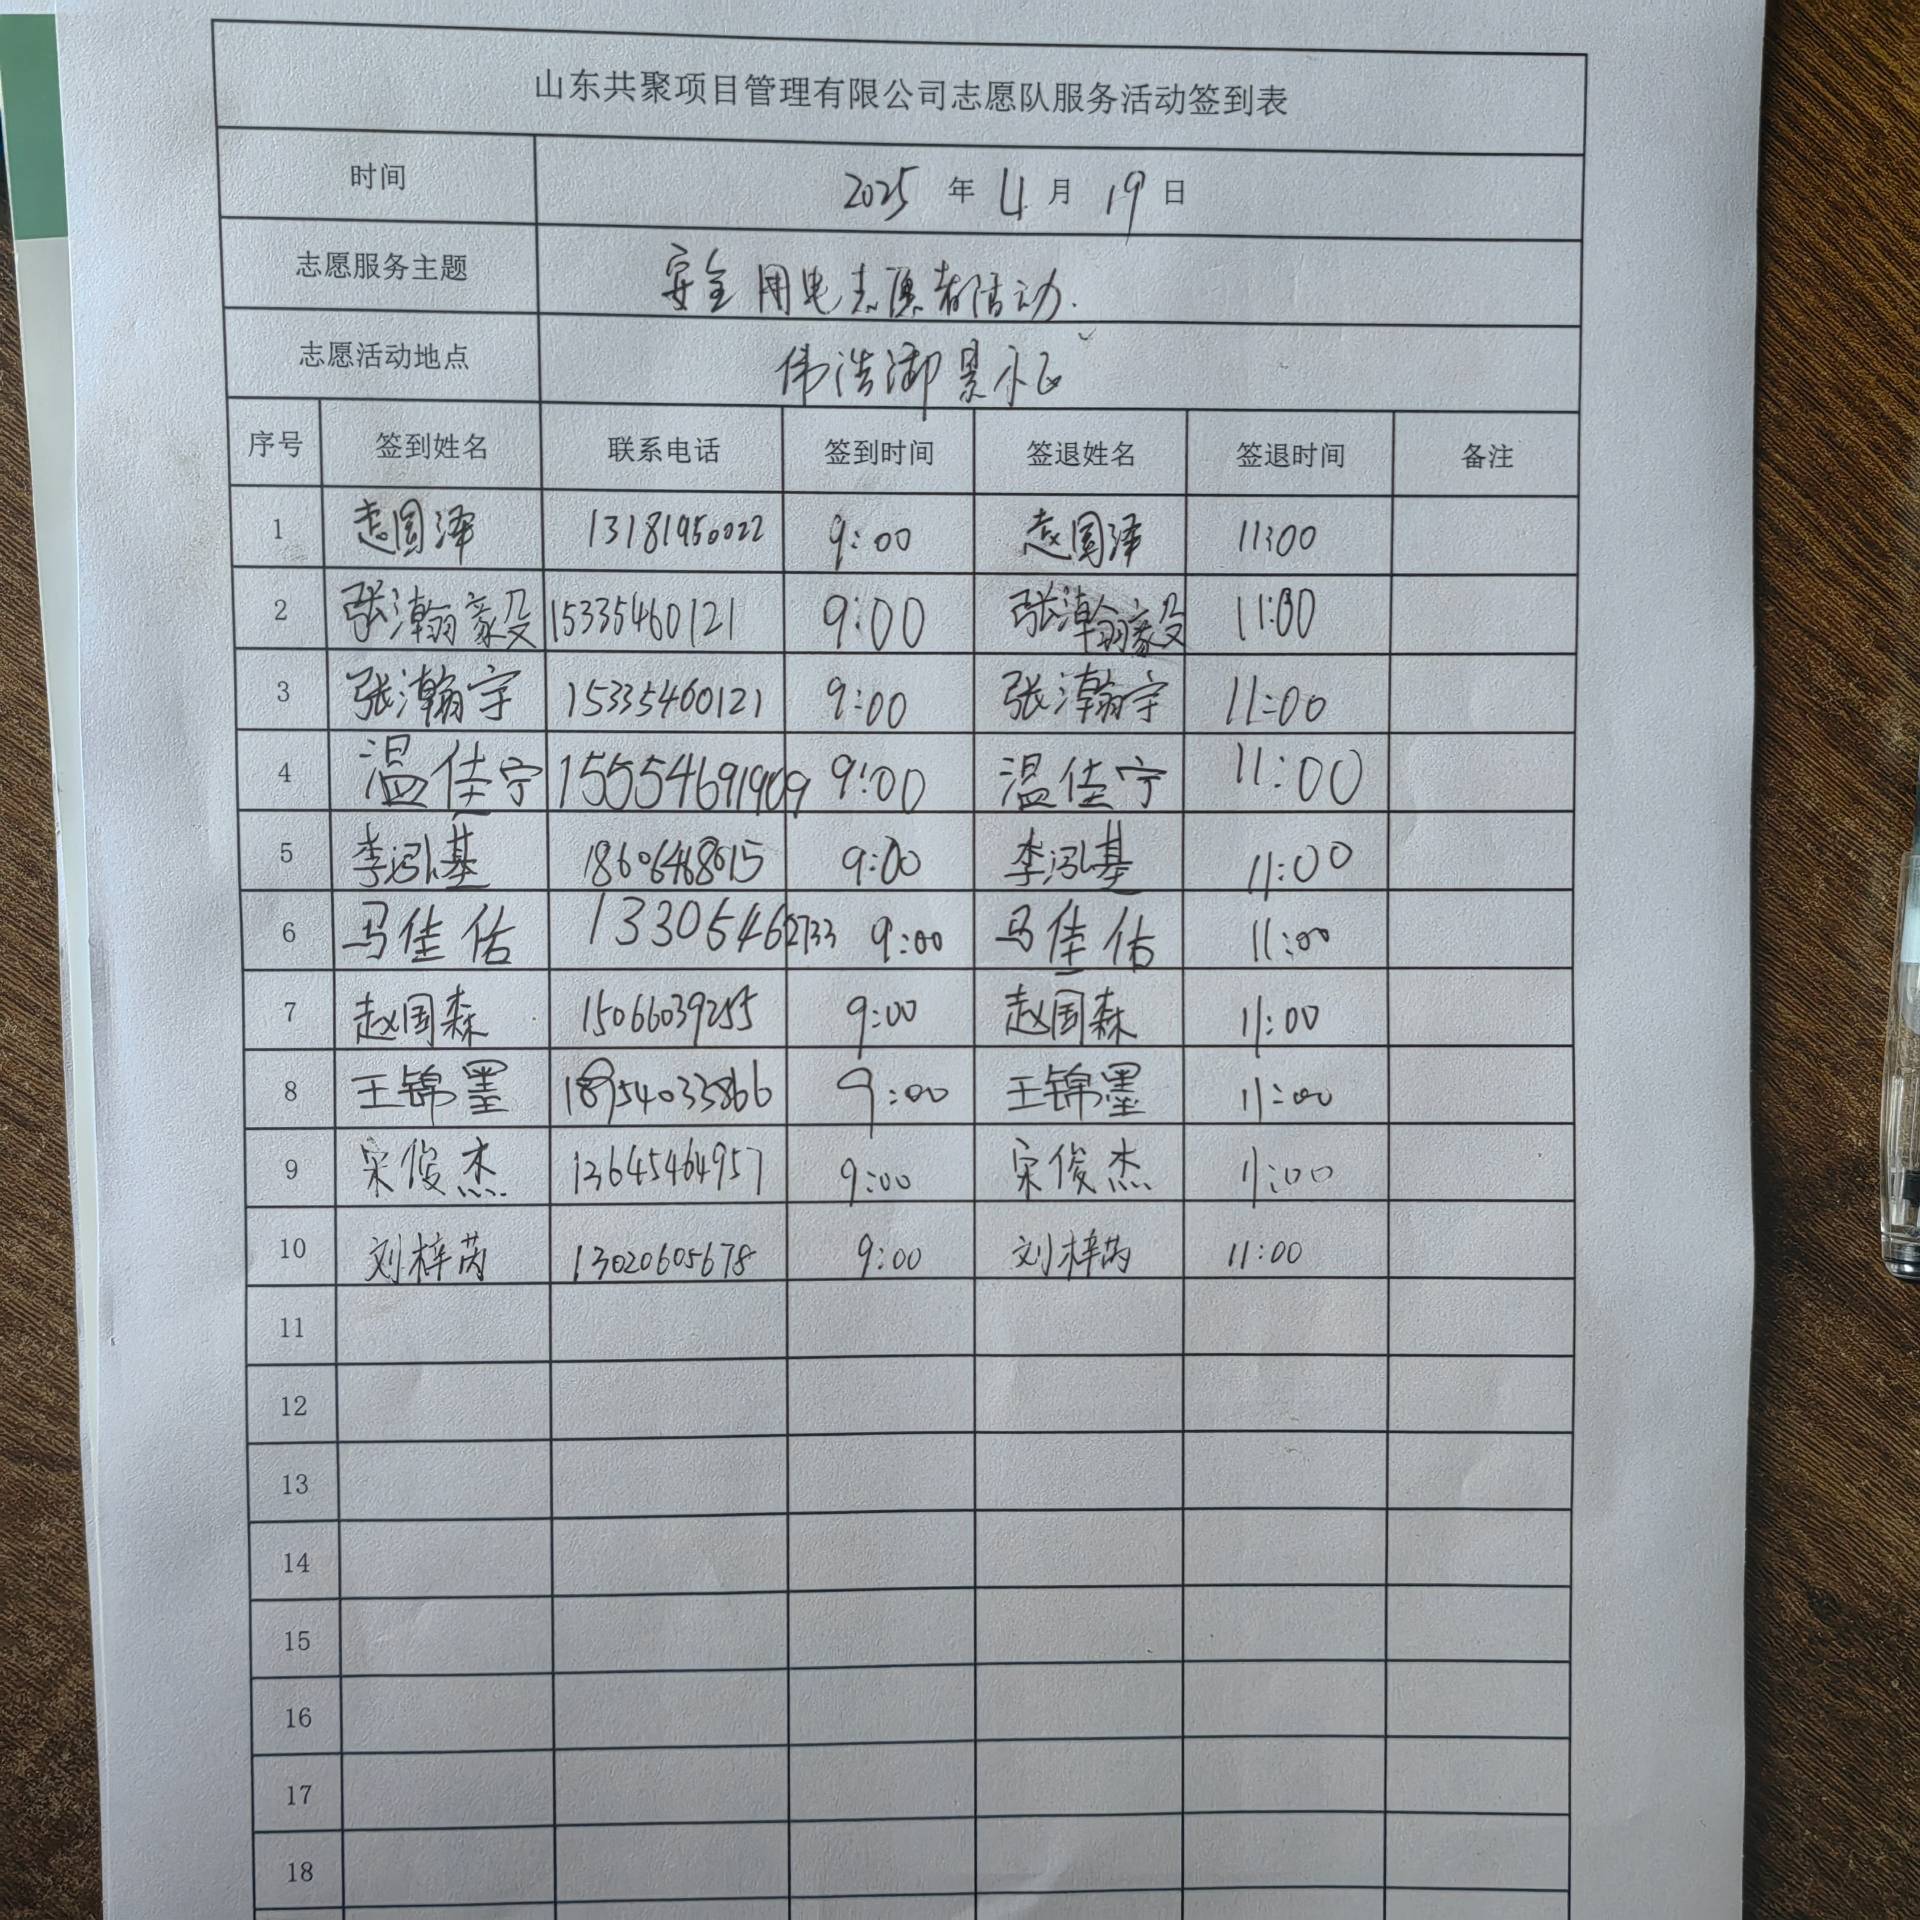 山东共聚项目管理有限公司志愿队服务活动签到表
时间 2025 年 4 月 19 日
志愿服务主题 安全用电志愿者活动.
志愿活动地点 伟浩御景小区
序号 签到姓名 联系电话 签到时间 签退姓名 签退时间 备注
1 赵国泽 13181950022 9:00 赵国泽 11:00
2 张瀚毅 15335460121 9:00 张瀚毅 11:00
3 张瀚宇 15335460121 9:00 张瀚宇 11:00
4 温佳宁 15554691909 9:00 温佳宁 11:00
5 李泓基 18606468015 9:00 李泓基 11:00
6 马佳佑 13305462733 9:00 马佳佑 11:00
7 赵国森 15066039255 9:00 赵国森 11:00
8 王锦墨 18954033866 9:00 王锦墨 11:00
9 宋俊杰 13645464957 9:00 宋俊杰 11:00
10 刘梓芮 13020605678 9:00 刘梓芮 11:00
11
12
13
14
15
16
17
18